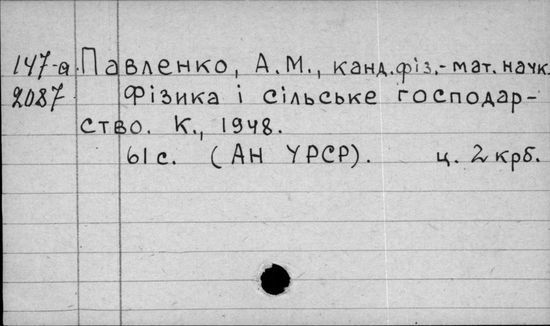 147-а Павленко, А.М., канд.фіз.-мат. начк.
2087 Фізика і сільське господар-
ство. К., 1948.
61 с. (АН УРСР). ц. 2 крб.